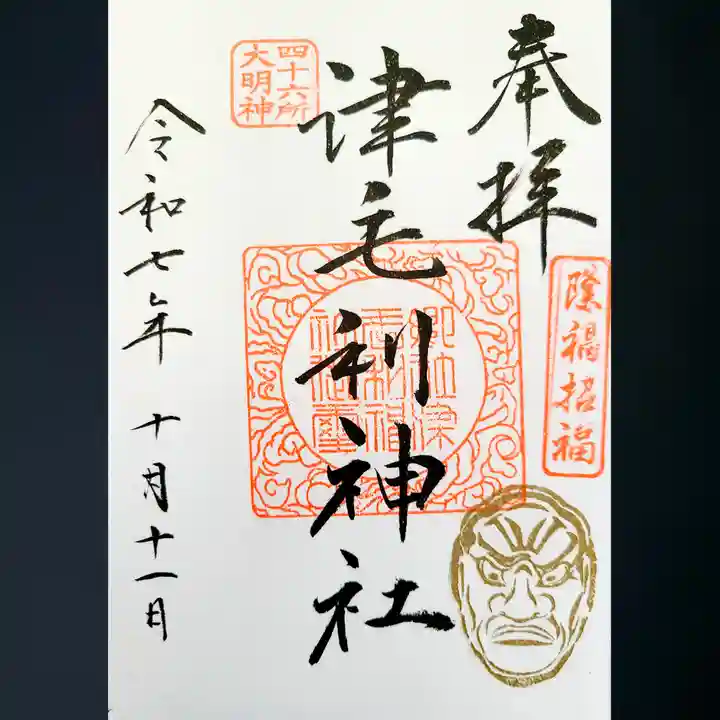 奉拝
除禍招福
四十六所
大明神
津毛利神社
令和七年 十月十一日